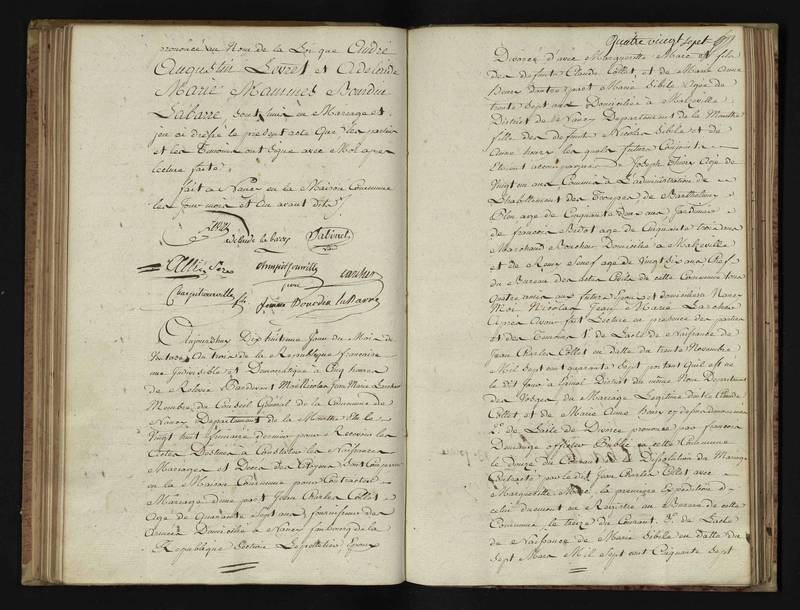 prononcé au Nom de la Loi que André
Augustin Livret et Adelaide
Marie Mammes Bourdin
Labarre, sont unis en Mariage et
j'en ai dressé le present acte que les parties
et les Temoins ont signé avec Moi apres
lecture faite
fait a Nancy en la Maison Commune
les Jour mois et an avant dits
adelaide labarre
femme Bourdin labarre
Aujourdhuy Dix huitieme Jour du Mois de
Ventose An troisieme de la Republique francaise
une Indivisible et Democratique à Cinq heures
de Relevée Pardevant Moi Nicolas Jean Marie Larcher
Membre du Conseil Général de la Commune de
Nancy Departement de la Meurthe Elu le
Vingt huit frimaire dernier pour Recevoir les
Actes Destinés à Constater les Naissances
Mariages et Décés des Citoyens sont Comparus
en la Maison Commune pour Contracter
Mariage d'une part Jean Charles Collet
Agé de Quarante Sept ans fournisseur des
Armées Domicilié à Nancy faubourg de la
Republique Section Lepelletier Epoux
Quatre vingt sept
Divorcé d'avec Marguerite Marc et fils
des defunts Claude Collet, et de Marie Anne
Bourg d'autre part Marie Sibile Agée de
trente sept ans Domiciliée à Maxeville
District de Nancy Departement de la Meurthe
fille des defunts Nicolas Sibile et de
Anne les quels futurs Conjoints
Etoient accompagnés de Joseph Agé de
Vingt un ans Commis à L'administration de
L'habillement des Troupes, de Barthelemy
Blon agé de Cinquante deux ans Jardinier
de francois Bidot age de Cinquante trois ans
Marchand Boucher Domiciliés à Maxeville
et de agé de Vingt Six ans Chef
du Bureau des Actes Civils de cette Commune tous
quatre amis aux futurs Epoux et domiciliés à Nancy
Moi Nicolas Jean Marie Larcher
Apres Avoir fait Lecture en presence des parties
et des Temoins 1º de L'acte de Naissance de
Jean Charles Collet en datte du trente Novembre
Mil Sept cent quarante Sept portant Quil est né
le dit Jour à Epinal District du même Nom Departement
des Vosges, du Mariage Legitime d'entre Claude
Collet et de Marie Anne Bourg
2º de L'acte de Divorce prononcé par francois
officier Public en cette Commune
le douze du Courant Dissolution du Mariage
Contracté par le dit Jean Charles Collet avec
Marguerite Marc, la premiere Expedition d-
elui duement en Registre au Bureau de cette
Commune le treize du Courant 3º de L'acte
de Naissance de Marie Sibile en datte du
Sept Mars Mil Sept cent Cinquante Sept